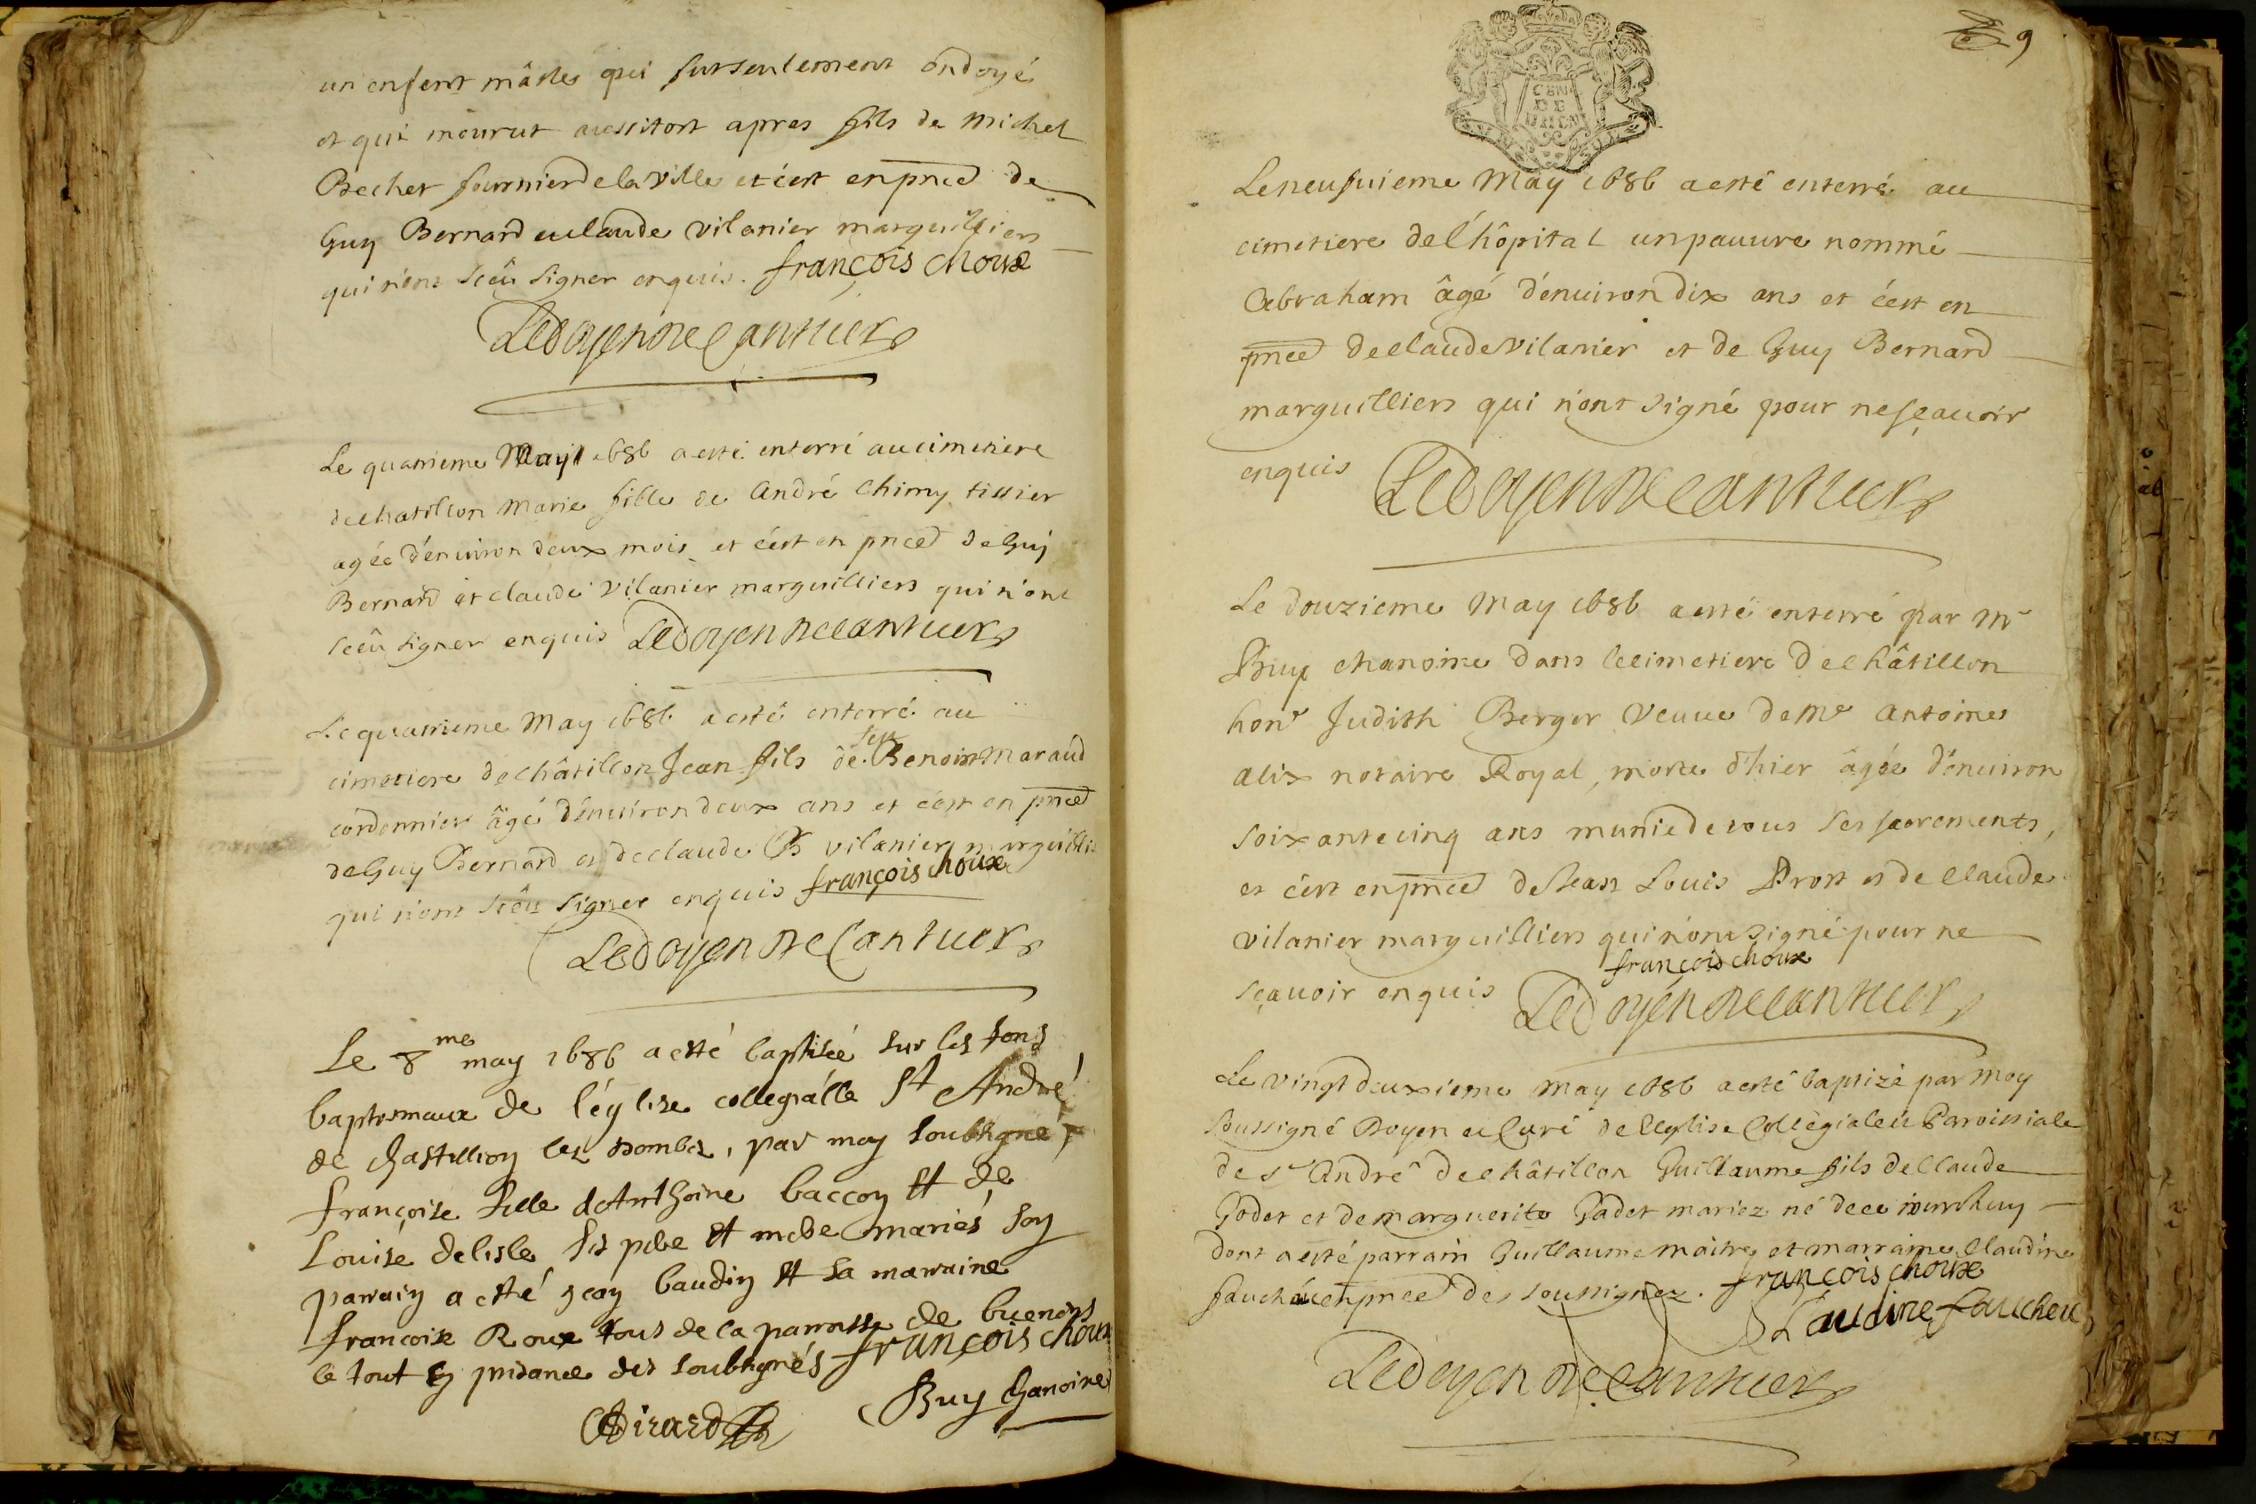 un enfant mâsle qui fut seulement ondoyé
et qui mourut aussitost apres fils de Michel
Becher fournier de la ville et c'est en pnce de
Guy Bernard et claude vilanier marguilliers
qui n'ont sceû signer enquis. françois choux
Ledoyen De Cantuer
Le quatrieme May 1686 a esté enterré au cimetiere
de chatillon Marie fille de André Chimy tissier
agée d'enuiron deux mois et c'est en pnce de Guy
Bernard et claude Vilanier marguilliers qui n'ont
sceû signer enquis Ledoyen De Cantuer
Le quatrieme May 1686 a esté enterré au
feu
cimetiere de châtillon Jean fils de Benoist Maraud
cordonnier âgé d'enuiron deux ans et c'est en pnce
de Guy Bernard et de claude vilanier marguillie
qui n'ont sceû signer enquis françois choux
Ledoyen De Cantuer
Le 8me may 1686 a esté baptisée sur les fons
baptismaux de l'église collegialle St André
de Chastillion les Dombes, par moy soubsigné
françoise fille d'Anthoine baccon et de
Louise delisle ses pere et mere mariés son
parrain a esté Jean baudin et sa marraine
francoise Roux tous de la parroisse de buenens
le tout en presance des soubsignés françois choux
Buy Chanoine
Girard
9
GEN
DE
Le neufuieme May 1686 a esté enterré au
cimetiere de l'hôpital un pauure nommé
Abraham âgé d'enuiron dix ans et c'est en
pnce de claude vilanier et de Guy Bernard
marguilliers qui n'ont signé pour ne sçauoir
enquis Ledoyen De Cantuer
Le douzieme May 1686 a esté enterré par Mr
Buy chanoine dans le cimetiere de châtillon
honе Judith Berger Veuue de Me Antoine
alix notaire Royal, morte d'hier âgée d'enuiron
soixante cinq ans munie de tous ses sacrements,
et c'est en pnce de Jean Louis Prost et de Claude
vilanier marguilliers qui n'ont signé pour ne
françois choux
sçauoir enquis Ledoyen De Cantuer
Le vingt deuxieme May 1686 a esté baptizé par moy
soussigné Doyen et Curé de l'Eglise Collégiale et Paroissiale
de St André de châtillon Guillaume fils de Claude
Godet et de marguerite Gadet mariez né de ce iourdhuy
dont a esté parrain Guillaume maitre et marraine Claudine
faucheu en pnce des soussignez. françois choux
Claudine faucheu
Ledoyen De Cantuer